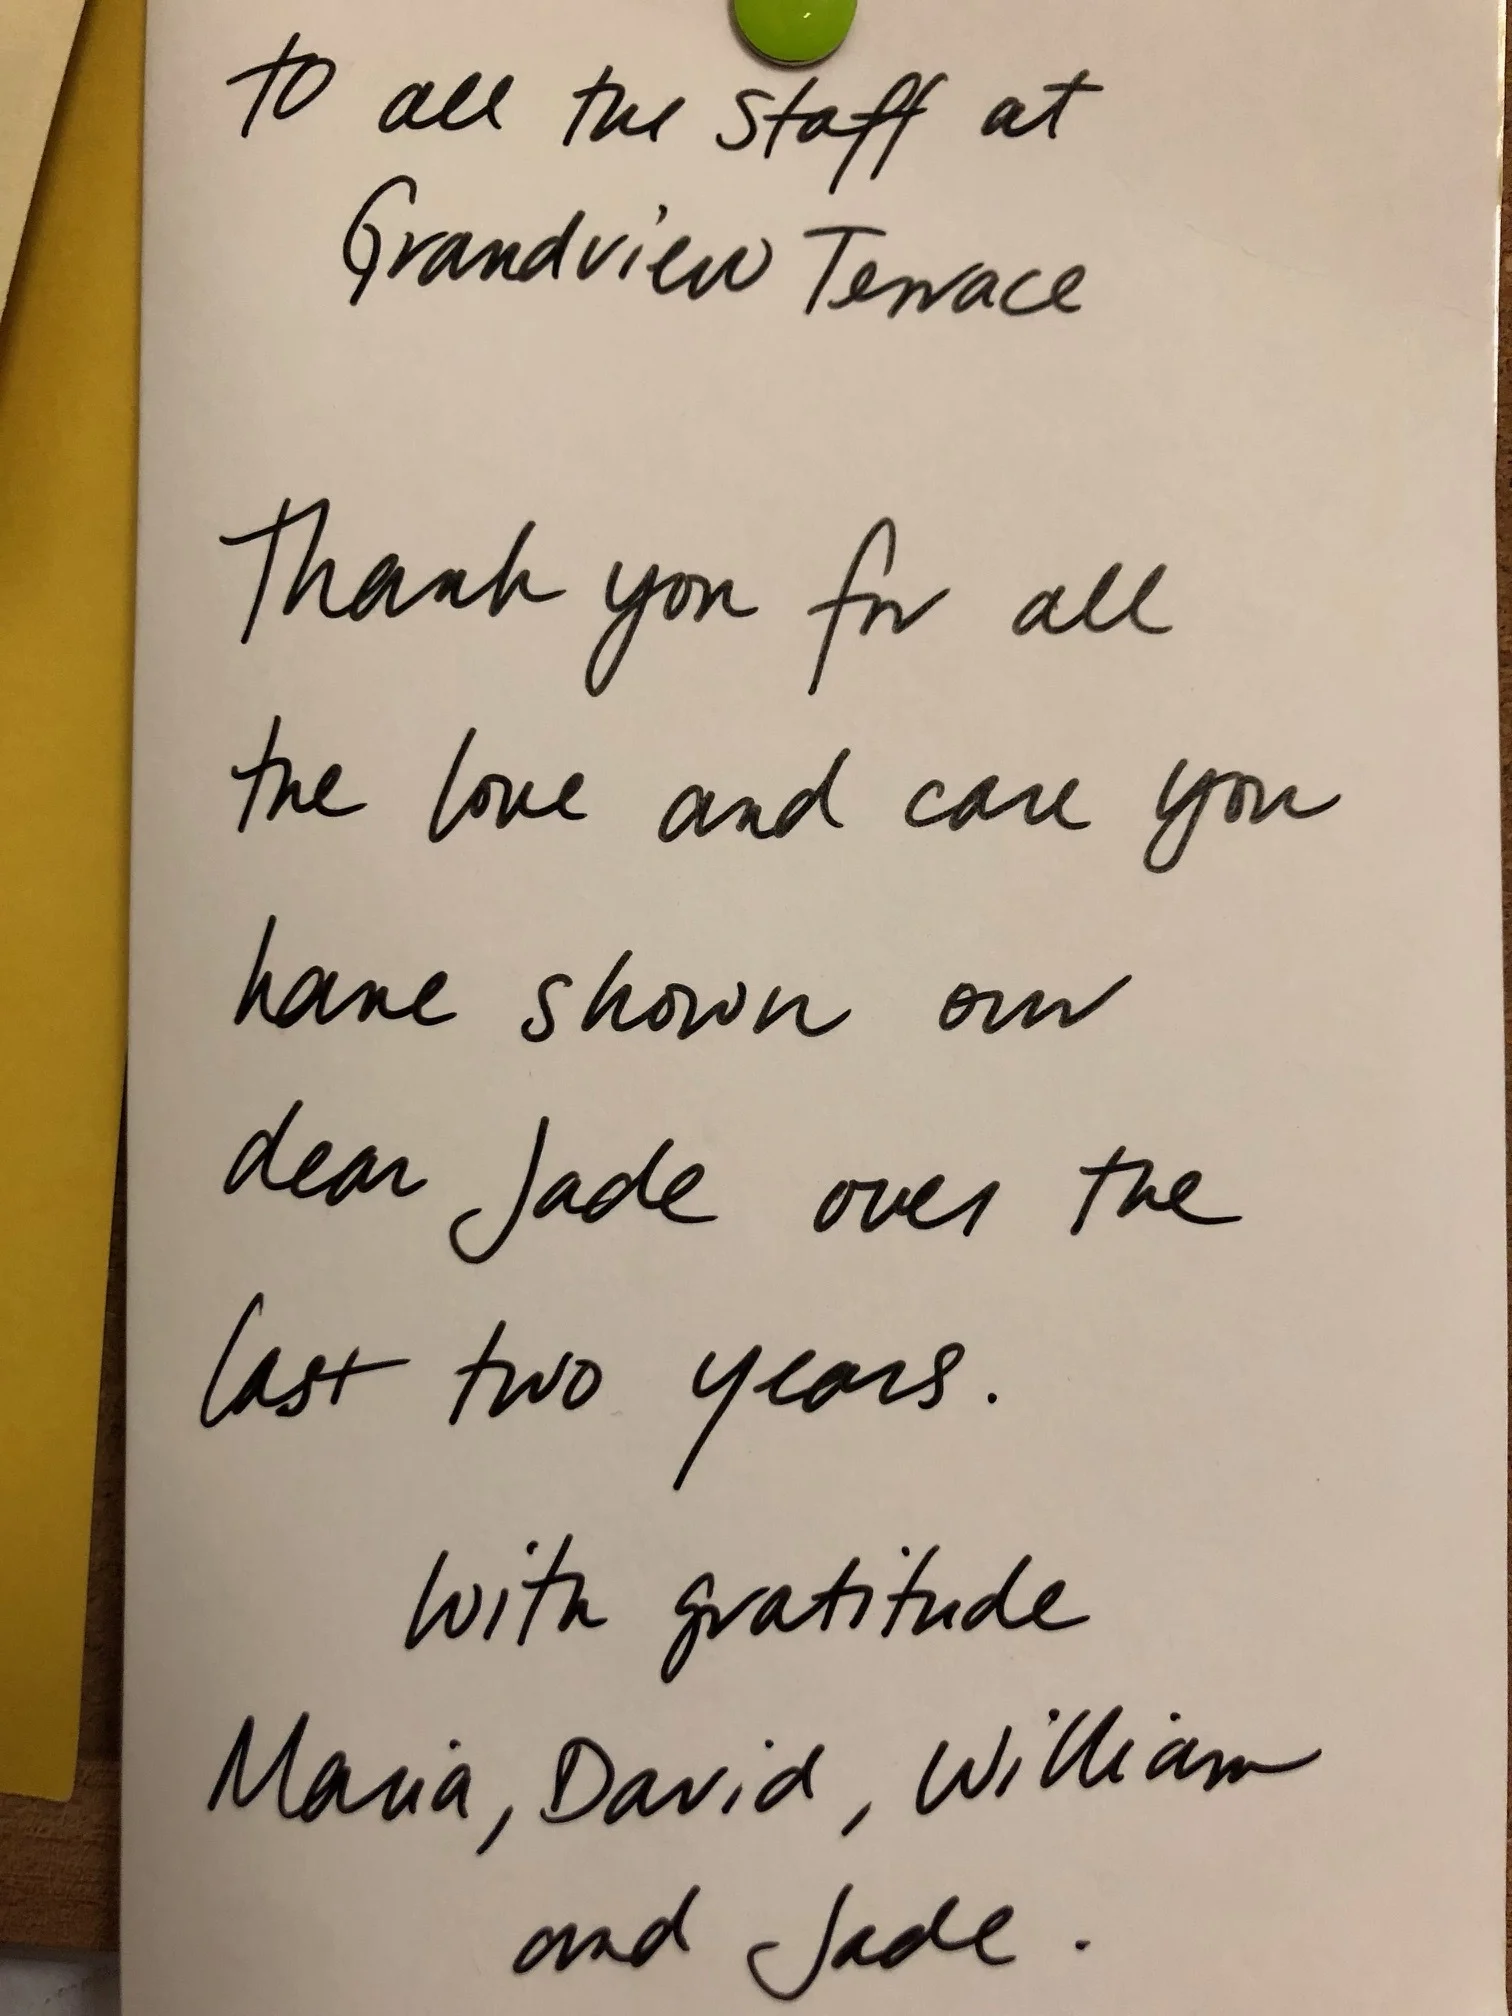 To all the staff at
Grandview Terrace
Thank you for all
the love and care you
have shown our
dear Jade over the
last two years.
With gratitude
Maria, David, William
and Jade.